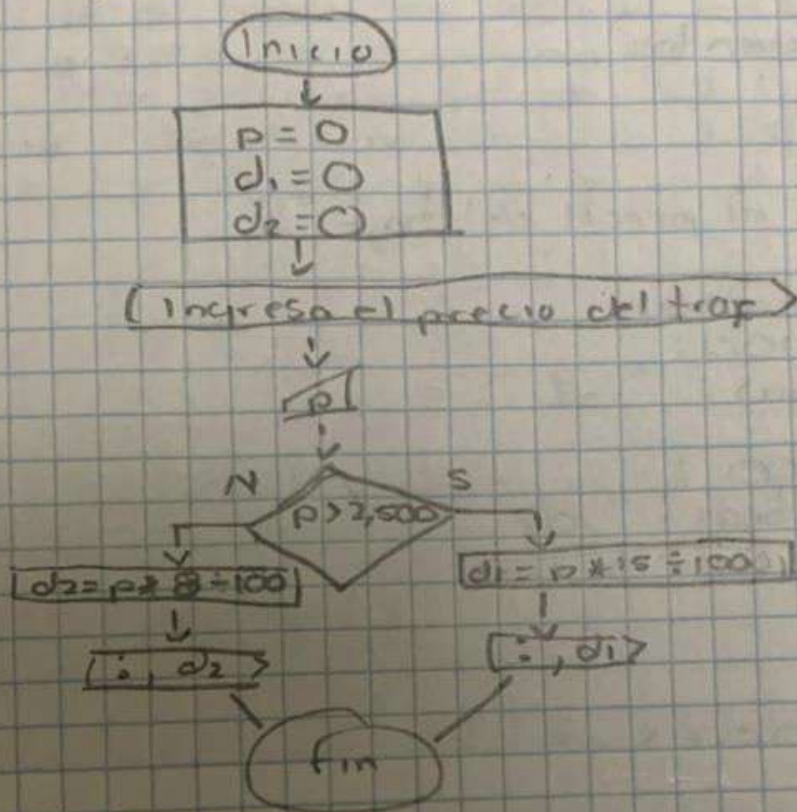 Inicio
p = 0
d1 = 0
d2 = 0
Ingresa el precio del traje
p
N
S
p > 2,500
d2 = p * 8 ÷ 100
d1 = p * 15 ÷ 100
: , d2
: , d1
fin